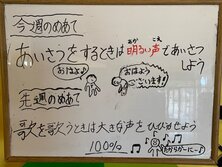 今週のめあて
あか　こえ
あいさつをするときは明るい声であいさつ
しよう
おはよう
おはよう
ございます!
先週のめあて
歌を歌うときは大きな声をひびかせよう
100%